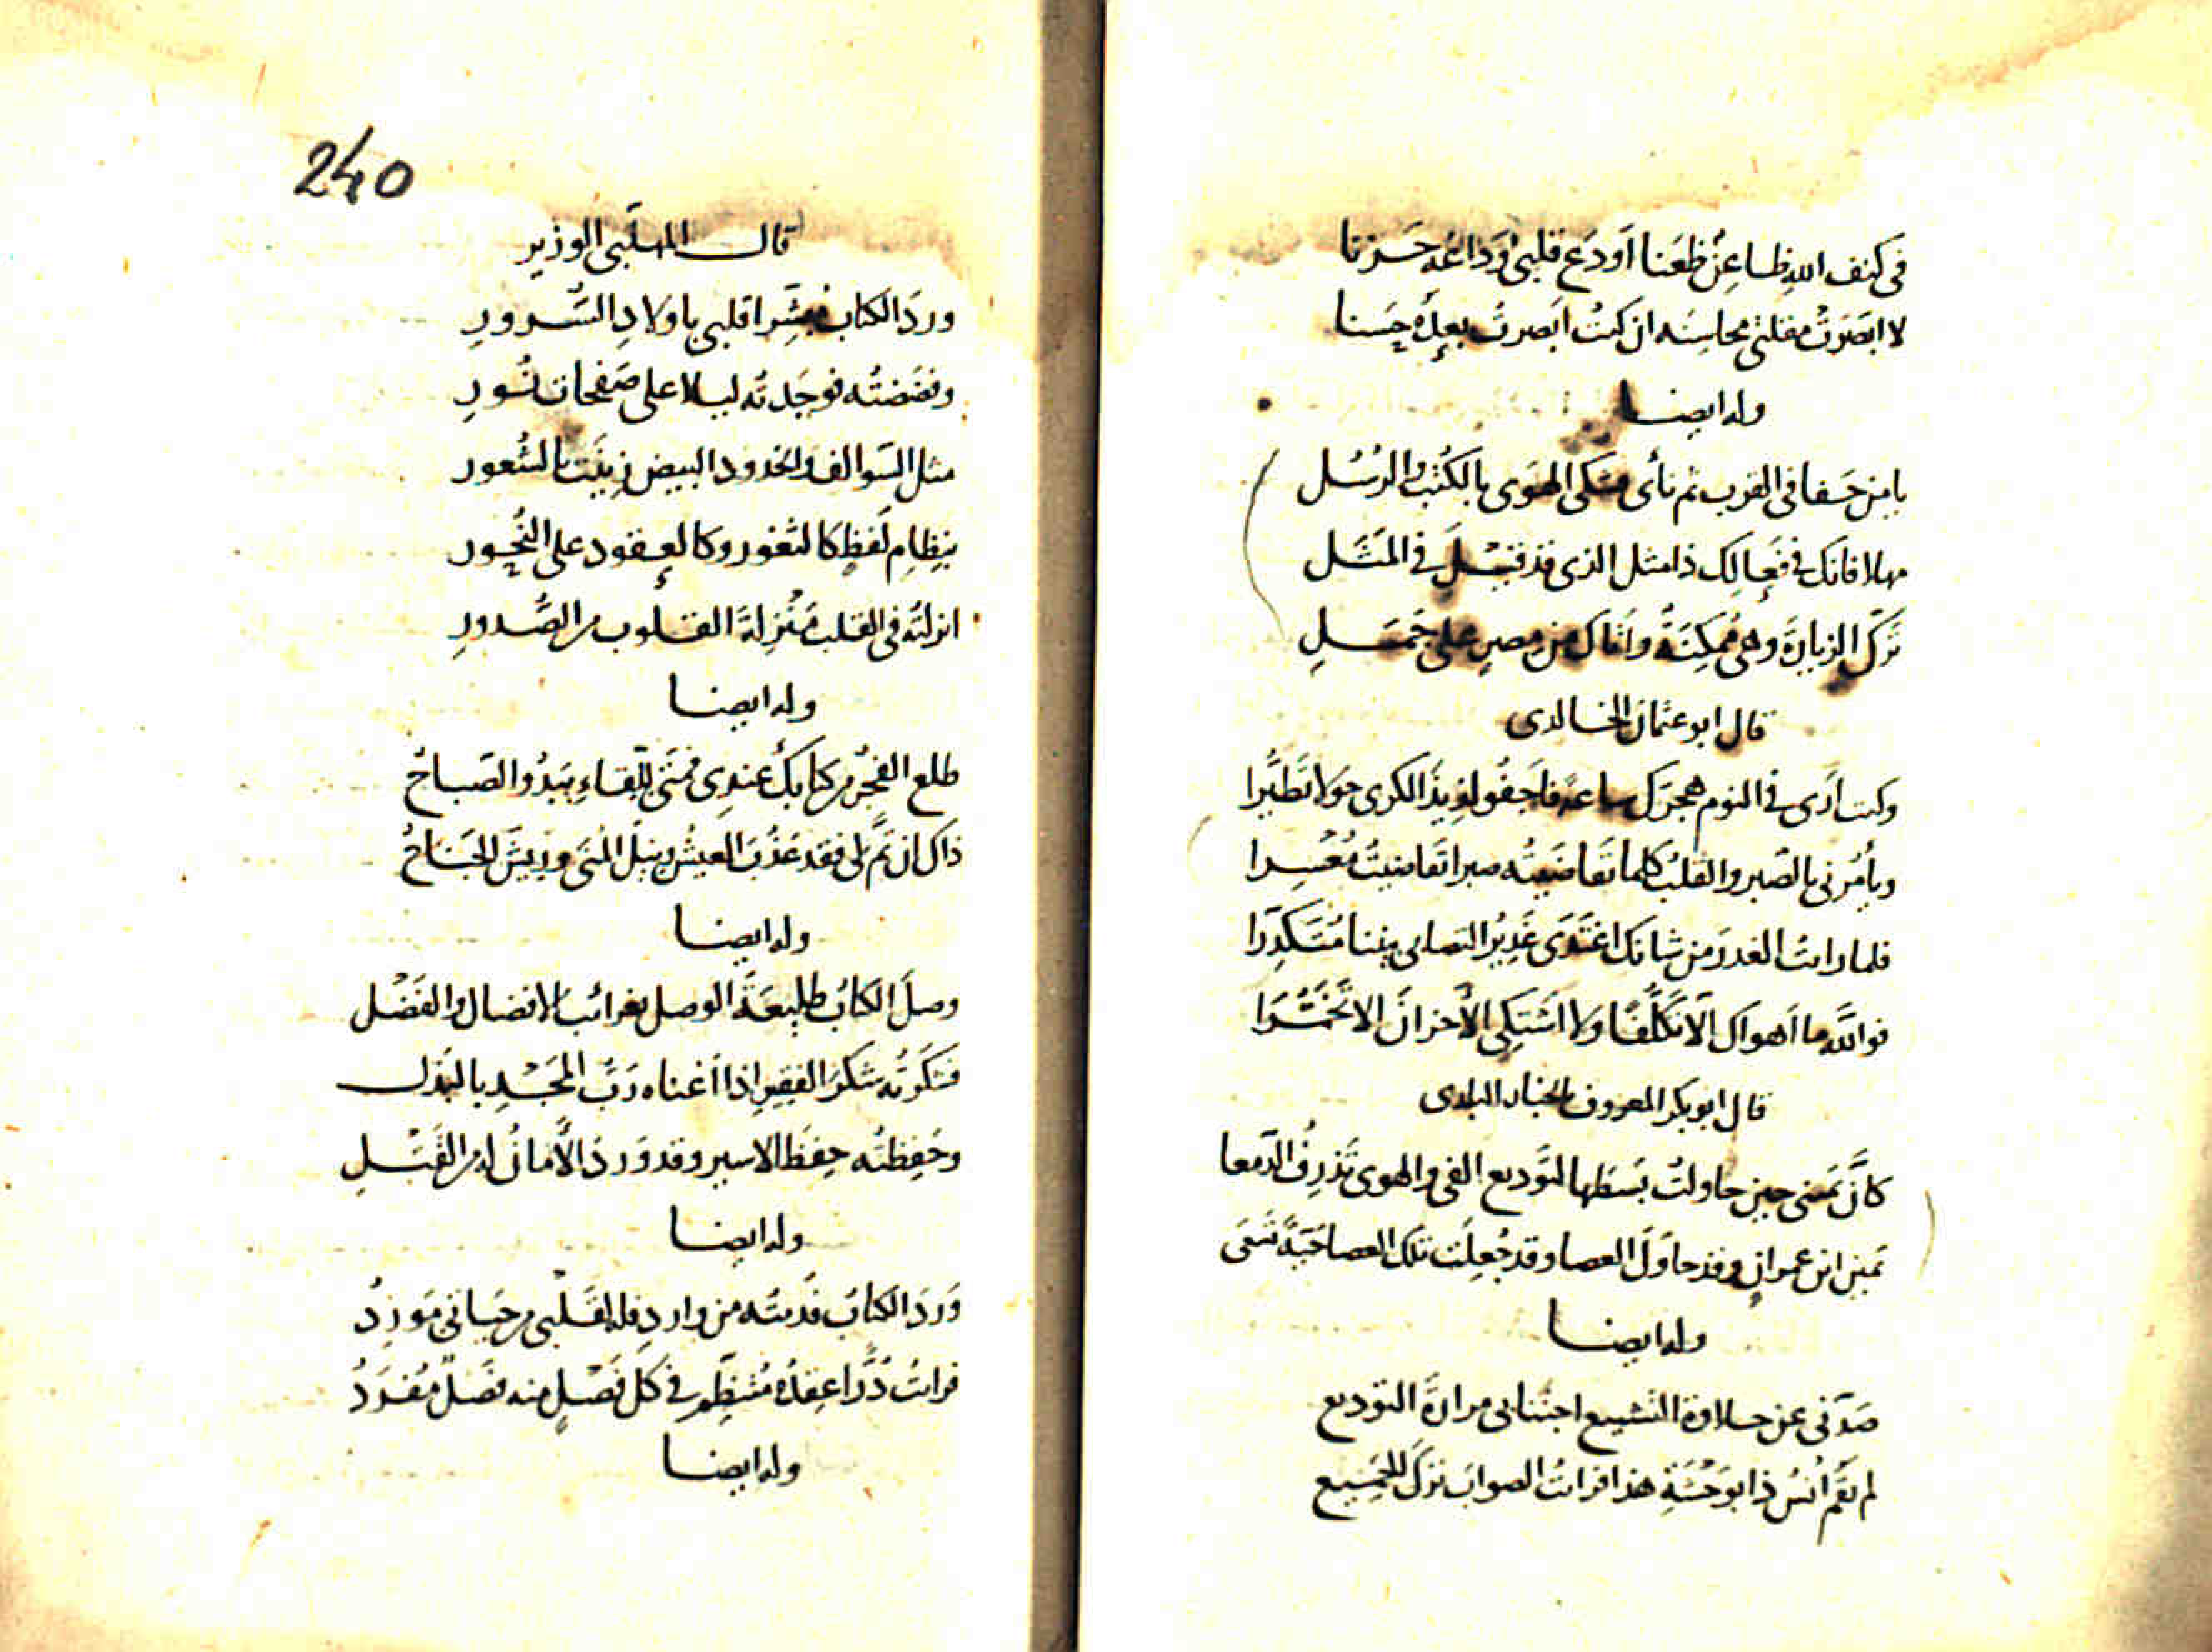 فى كنف الله ظاعِنٌ ظَعَنا اَودَع قلبى وَدَاعُه حَزنا
لا ابصَرَتْ مقلتى محاسِنَه ان كنتُ ابَصرتُ بعدَهُ حَسنا
وله ايضا
يا من جَفا فى القرب ثم نأى فشكى الهَوى بالكُتْبِ والرُسُل
مهلا فانك فى فَعَالِك ذا مثل الذى قد قيْلَ فى المَثَل
تَركَ الزيارَةَ وهى مُمكِنَةٌ واَتاك من مِصرٍ على جَمَلِ
قال ابو عثمان الخالدى
وكنت اَرَى فى النوم هجرَكَ ساعةً فاَجفُو لذيذَ الكرى حَولا تَطَيُّرا
ويأمُرنى بالصَبر والقلبُ كلما تَقَاضَيْتُه صبرا تَقاضيتُ مُعْسِرا
فلما رايتُ الغدرَ من شانك اغتَدَى غَدِيْرُ التصابى بيننا مُتَكَدِّرَا
فوَاللَّه ما اَهواك اِلّا تكَلُّفًا ولا اَشتَكِى الأحزانَ الا تَخَمُّرَا
قال ابو بكر المعروف بالخباز البلدى
كانَّ يَمينى حين حاولتُ بَسَطَها لتَوديع الفى والهوى تَذرِفُ الدَمعا
يَمينُ ابن عمرانٍ وقد حاوَلَ العصا وقد جُعِلَت تلك العصا حَيَةً تَسَعَى
وله ايضا
صَدّنى عن حلاوة التشييع اجتنابى مرارةَ التوديع
لم يَقُم اُنْسُ ذا بوَحْشَةِ هذا فرايتُ الصوابَ تركَ الجَميع
240
قال المهلَّبى الوزير
وردَ الكتابُ مُبشِّرا قلبى باولادِ السُّرورِ
وفضَضتُه فوجَدتُه ليلا على صَفحات نُورِ
مثل السَوالف والخدود البيض زِينَت بالشُعور
بنِظامِ لَفظٍ كالثغور وكالعقود على النُحور
انزلتُه فى القلب مَنْزِلَةَ القلوب من الصُّدورِ
وله ايضا
طلع الفَجرُ من كتابك عندى فمتَى لِلِّقَاءِ يَبدُو الصَباحُ
ذاك ان تَمَّ لى فقد عَذُبَ العيشُ ونيْلَ المُنَى ورِيشَ الجَناحُ
وله ايضا
وصلَ الكتابُ طليعَةَ الوصل بغرائب الافضال والفَضْل
فشكَرتُه شكرَ الفقيرِ اِذا اَغناه رَبُّ المَجْدِ بالبَذل
وحَفِظتُه حِفظَ الاسير وقد وَردَ الأمانُ له من القَتلِ
وله ايضا
وَردَ الكتابُ فديتُه من واردٍ فله بقَلبى من حَياتى مَورِدُ
فرايتُ دُرًّا عِقدُهُ مُنتَظِم فى كل فَصْلٍ منه فَصْلٌ مُفرَدُ
وله ايضا